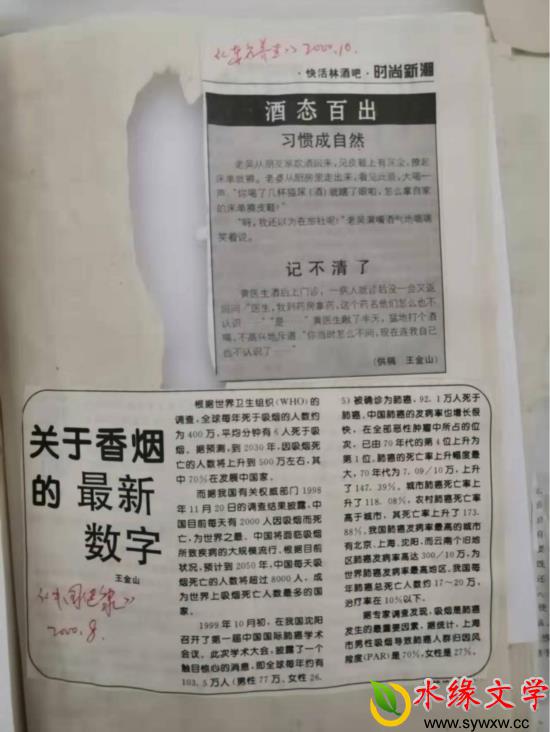 2000.10.
·快活林酒吧·时尚新潮
酒态百出
习惯成自然
老吴从朋友家饮酒回来，见皮鞋上有灰尘，撩起
床单就擦。老婆从厨房里走出来，看见此景，大喝一
声：“你喝了几杯猫尿(酒)就瞎了眼啦，怎么拿自家
的床单擦皮鞋！”
“呀，我还以为在旅社呢！”老吴满嘴酒气地嘻嘻
笑着说。
记不清了
黄医生酒后上门诊，一病人就诊后没一会又返
回问：“医生，我到药房拿药，这个药名他们怎么也不
认识……”“是……”黄医生瞅了半天，猛地打个酒
嗝，不高兴地斥道：“你当时怎么不问，现在连我自己
也不认识了……”
(供稿 王金山)
关于香烟
的最新
数字
王金山
《中国健康》
2000.8.
根据世界卫生组织(WHO)的
调查，全球每年死于吸烟的人数约
为400万，平均分钟有6人死于吸
烟。据预测，到2030年，因吸烟死
亡的人数将上升到500万左右，其
中70%在发展中国家。
而据我国有关权威部门1998
年11月20日的调查结果披露，中
国目前每天有2000人因吸烟而死
亡，为世界之最。中国将面临吸烟
所致疾病的大规模流行。根据目前
状况，预计到2050年，中国每天吸
烟死亡的人数将超过8000人，成
为世界上吸烟死亡人数最多的国
家。
1999年10月初，在我国沈阳
召开了第一届中国国际肺癌学术
会议。此次学术大会，披露了一个
触目惊心的消息，即全球每年约有
103.5万人(男性77万、女性26.
5)被确诊为肺癌，92.1万人死于
肺癌。中国肺癌的发病率也增长很
快，在全部恶性肿瘤中所占的位
次，已由70年代的第4位上升为
第1位。肺癌的死亡率上升幅度最
大，70年代为7.09/10万，上升
了147.39%。城市肺癌死亡率上
升了118.08%，农村肺癌死亡率
高于城市，其死亡率上升了173.
88%。我国肺癌发病率最高的城市
有北京、上海、沈阳，而云南个旧地
区肺癌发病率高达300/10万，为
世界肺癌发病率最高地区。我国每
年肺癌总死亡人数约17～20万，
治疗率在10%以下。
据专家调查发现，吸烟是肺癌
发生的最重要因素。据统计，上海
市男性吸烟导致肺癌人群归因风
险度(PAR)是70%，女性是27%。
水缘文学
www.sywxw.cc